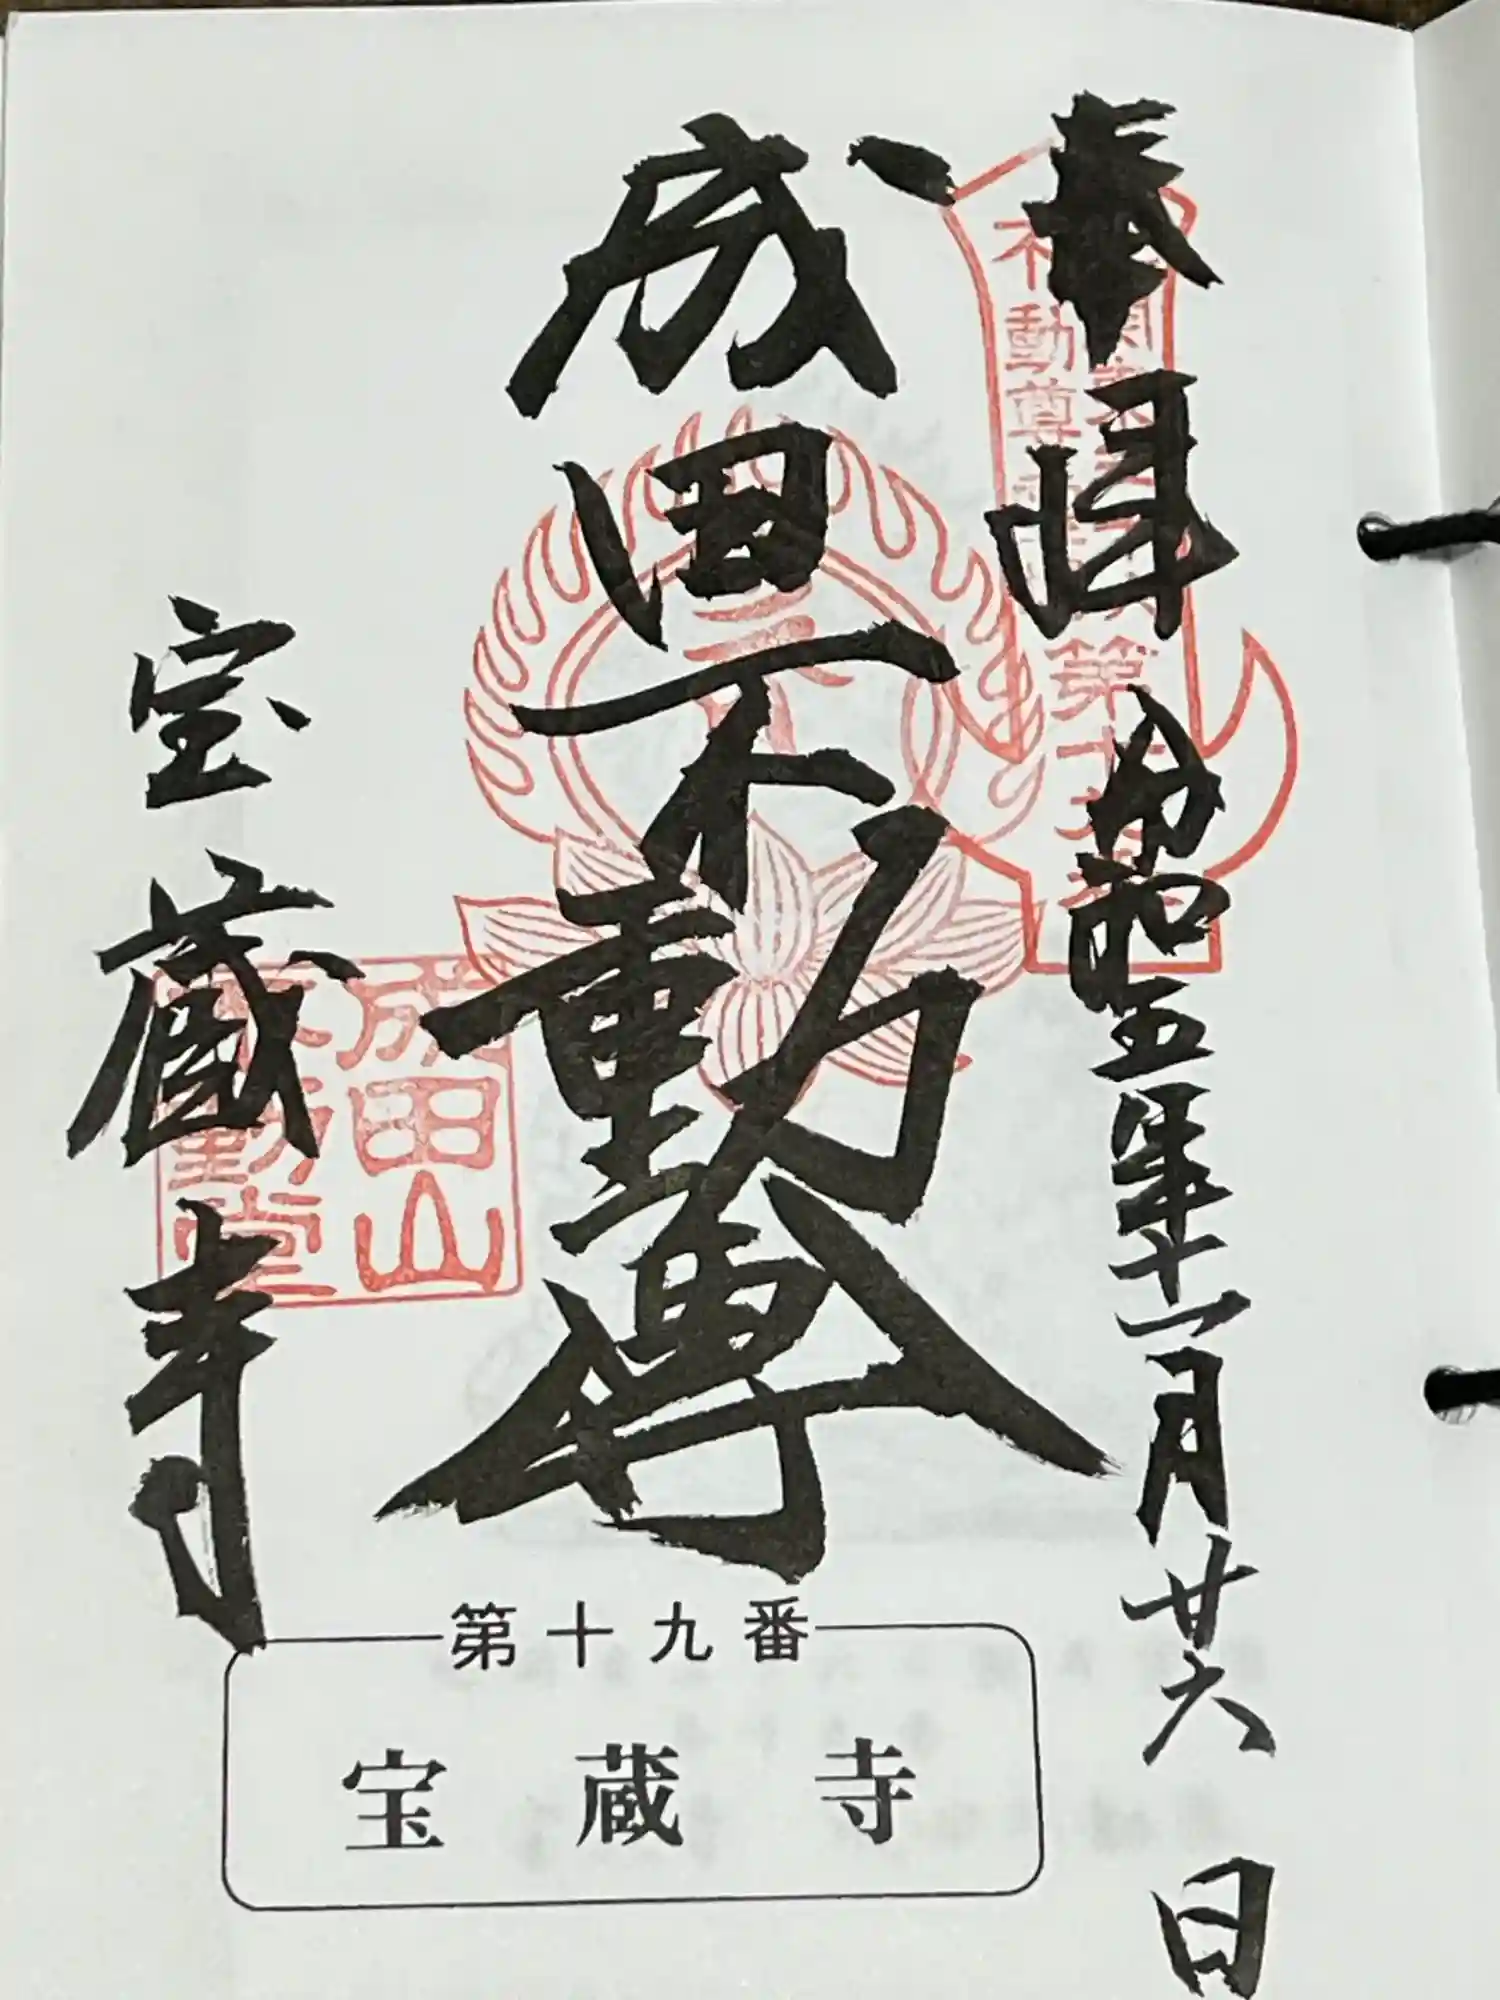 奉拝 令和五年十一月廿六日
成田不動尊
宝蔵寺
不動尊
第十九番
成田山
不動堂
第十九番
宝蔵寺